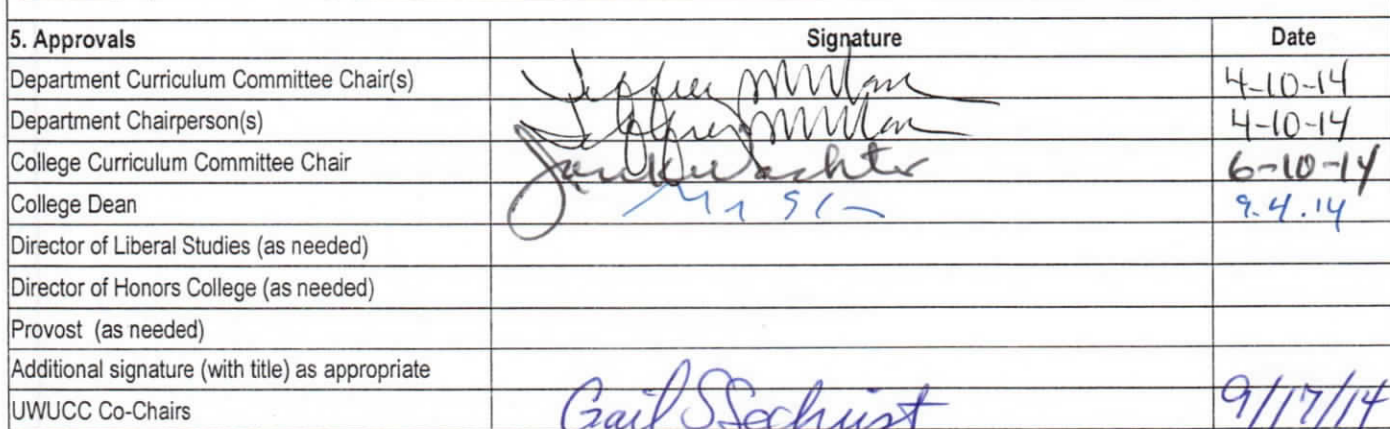 5. Approvals Signature Date
Department Curriculum Committee Chair(s) Jeffrey 4-10-14
Department Chairperson(s) Jeffrey 4-10-14
College Curriculum Committee Chair 6-10-14
College Dean 9.4.14
Director of Liberal Studies (as needed)
Director of Honors College (as needed)
Provost (as needed)
Additional signature (with title) as appropriate
UWUCC Co-Chairs Gail S Sechrist 9/17/14